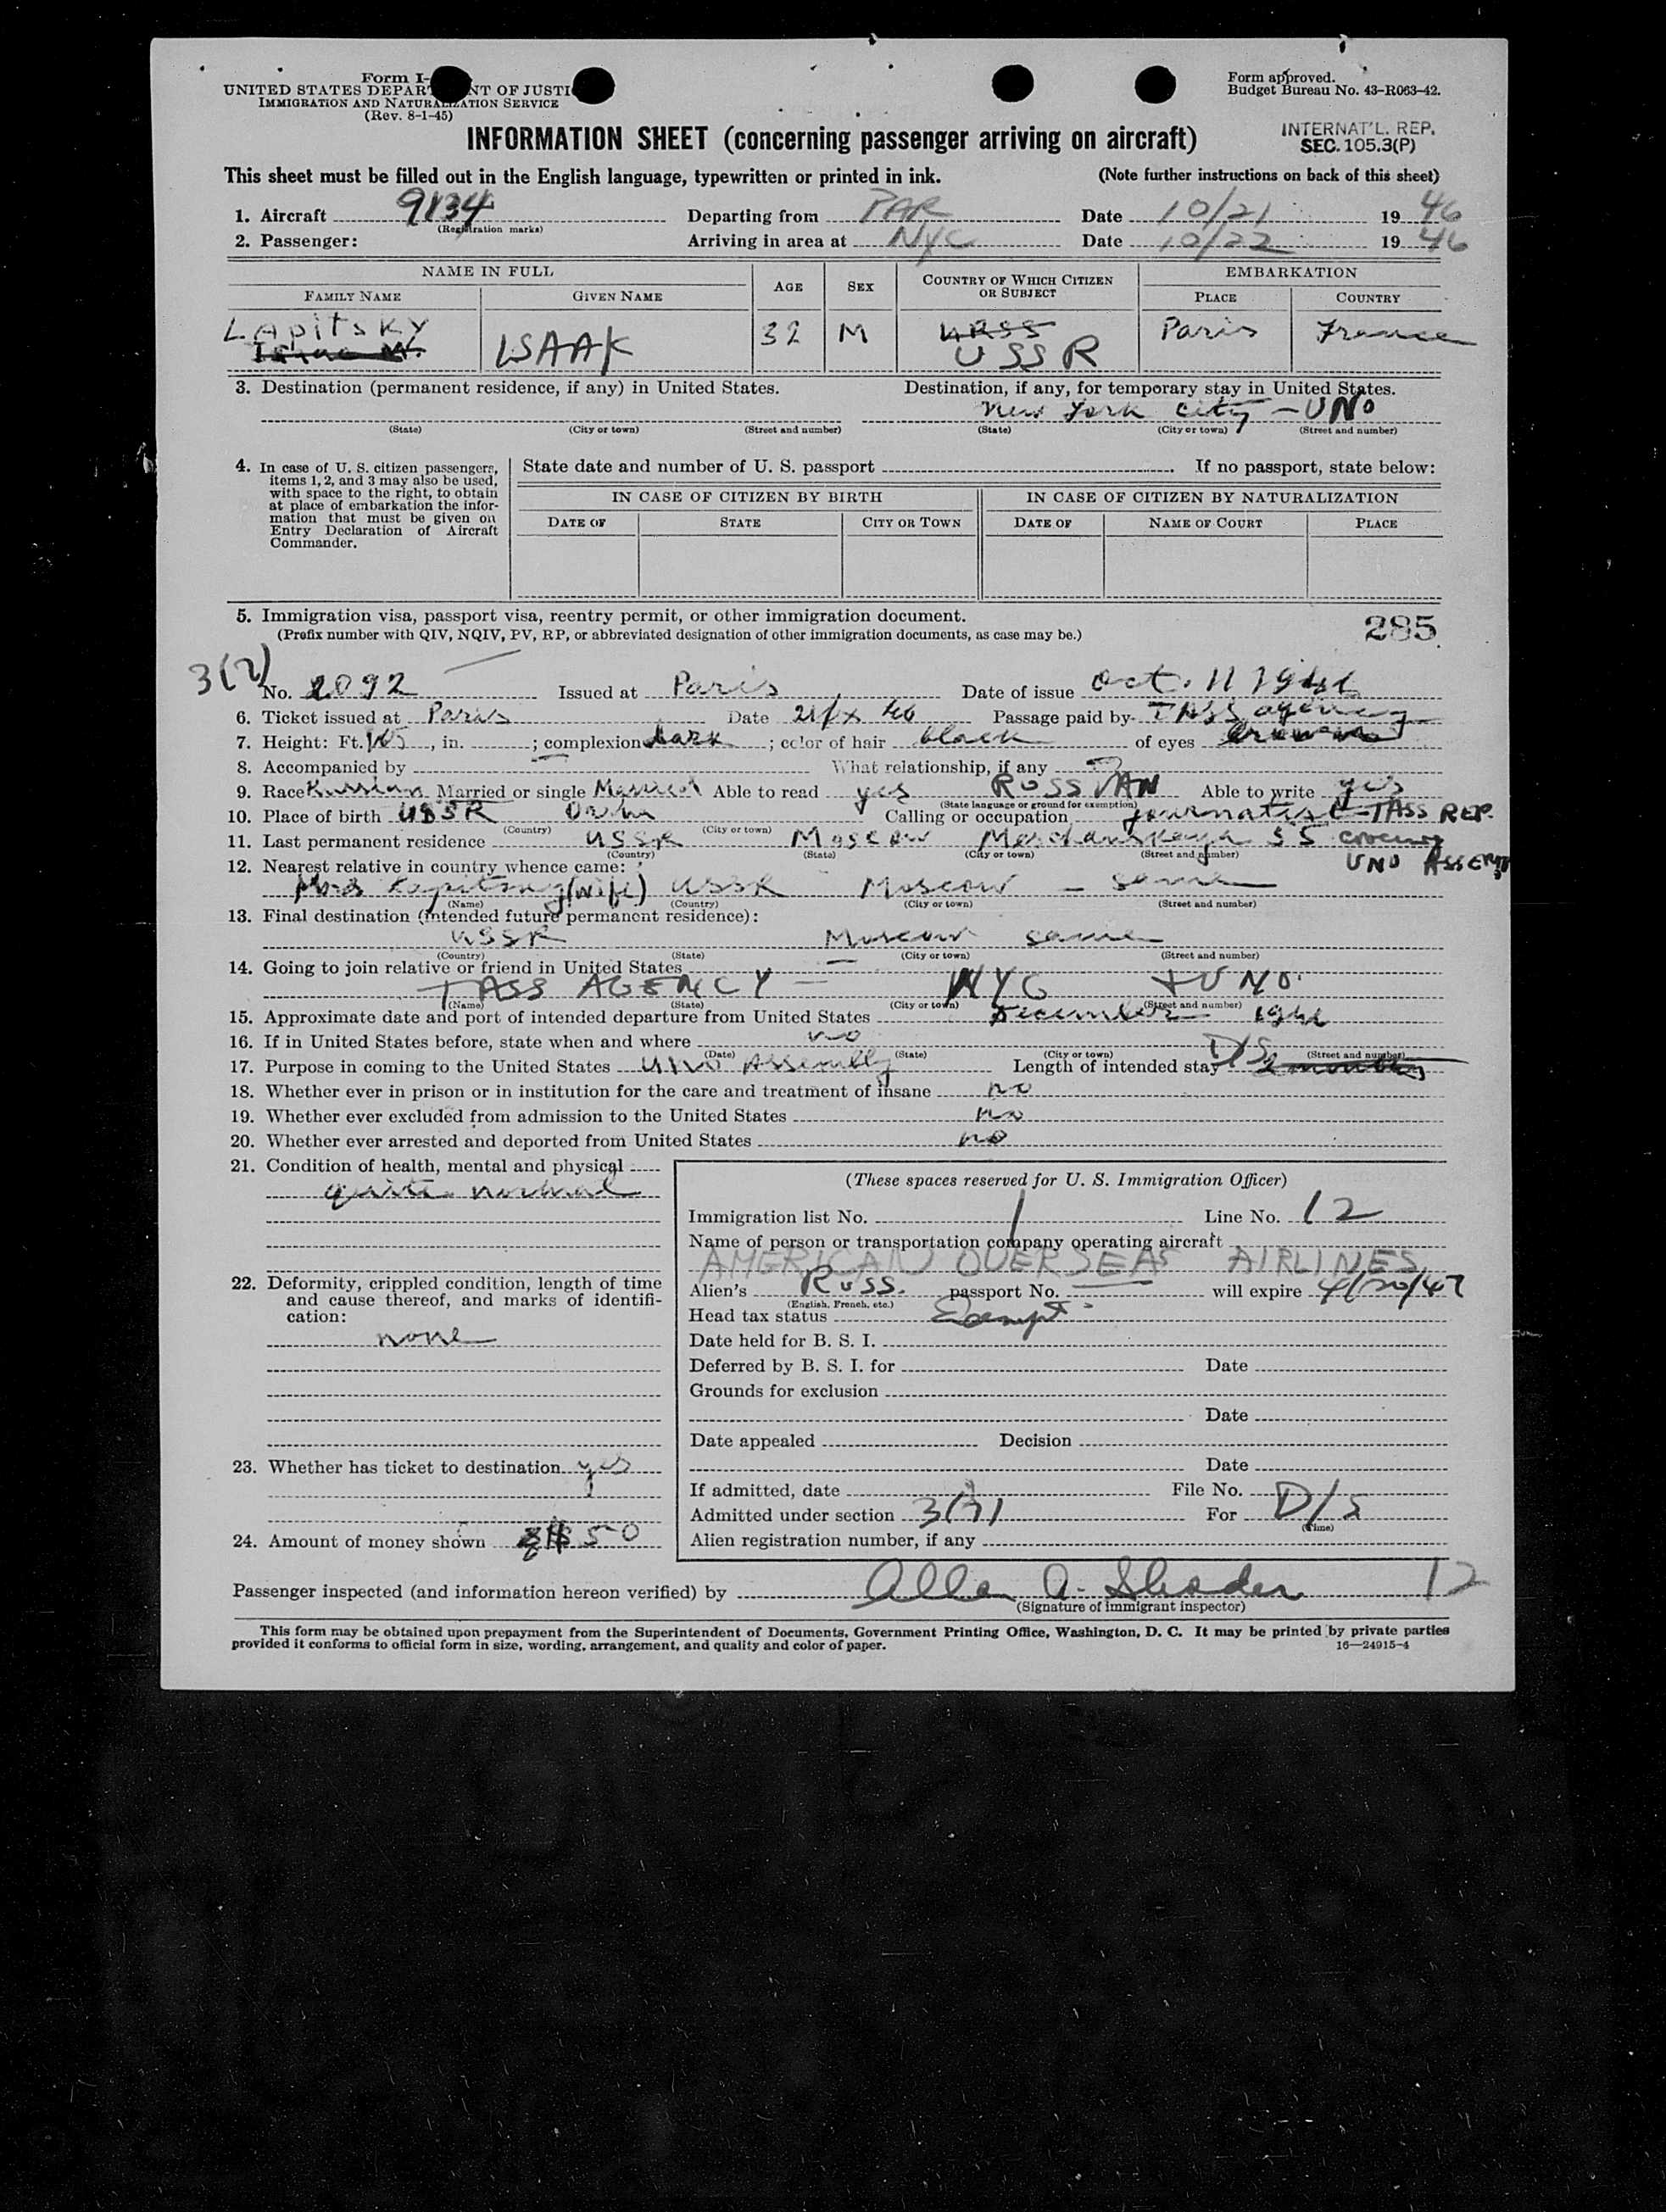 Form I-
UNITED STATES DEPAR NT OF JUSTI
IMMIGRATION AND NATURALIZATION SERVICE
(Rev. 8-1-45)
Form approved.
Budget Bureau No. 43-R063-42.
INFORMATION SHEET (concerning passenger arriving on aircraft)
INTERNAT'L. REP.
SEC. 105.3(P)
This sheet must be filled out in the English language, typewritten or printed in ink. (Note further instructions on back of this sheet)
1. Aircraft 9134 Departing from PAR Date 10/21 1946
(Registration marks)
2. Passenger: Arriving in area at NYC Date 10/22 1946
NAME IN FULL AGE SEX COUNTRY OF WHICH CITIZEN OR SUBJECT EMBARKATION
FAMILY NAME GIVEN NAME PLACE COUNTRY
LAPITSKY ISAAK 32 M URSS Paris France
USSR
3. Destination (permanent residence, if any) in United States. Destination, if any, for temporary stay in United States.
New York City - UNO
(State) (City or town) (Street and number) (State) (City or town) (Street and number)
4. In case of U. S. citizen passengers, items 1, 2, and 3 may also be used, with space to the right, to obtain at place of embarkation the information that must be given on Entry Declaration of Aircraft Commander.
State date and number of U. S. passport If no passport, state below:
IN CASE OF CITIZEN BY BIRTH IN CASE OF CITIZEN BY NATURALIZATION
DATE OF STATE CITY OR TOWN DATE OF NAME OF COURT PLACE
5. Immigration visa, passport visa, reentry permit, or other immigration document.
(Prefix number with QIV, NQIV, PV, RP, or abbreviated designation of other immigration documents, as case may be.)
285
3(7)
No. 2092 Issued at Paris Date of issue Oct. 11 1946
6. Ticket issued at Paris Date 21/X 46 Passage paid by TASS agency
7. Height: Ft. , in. ; complexion dark ; color of hair black of eyes brown
8. Accompanied by What relationship, if any
9. Race Russian Married or single Married Able to read yes RUSSIAN Able to write yes
(State language or ground for exemption)
10. Place of birth USSR Calling or occupation journalist - TASS REP.
(Country) (City or town)
11. Last permanent residence USSR Moscow 55 covering
(Country) (State) (City or town) (Street and number)
UNO ASSEM
12. Nearest relative in country whence came:
Mrs Lapitsky (wife) USSR Moscow - same
(Name) (Country) (City or town) (Street and number)
13. Final destination (intended future permanent residence):
USSR Moscow same
(Country) (State) (City or town) (Street and number)
14. Going to join relative or friend in United States
TASS AGENCY - NYC + UNO.
(Name) (State) (City or town) (Street and number)
15. Approximate date and port of intended departure from United States December 1946
16. If in United States before, state when and where no
(Date) (State) (City or town) (Street and number)
17. Purpose in coming to the United States UNO Assembly Length of intended stay D/S 2 months
18. Whether ever in prison or in institution for the care and treatment of insane no
19. Whether ever excluded from admission to the United States no
20. Whether ever arrested and deported from United States no
21. Condition of health, mental and physical
quite normal
22. Deformity, crippled condition, length of time and cause thereof, and marks of identification:
none
23. Whether has ticket to destination yes
24. Amount of money shown $50
(These spaces reserved for U. S. Immigration Officer)
Immigration list No. 1 Line No. 12
Name of person or transportation company operating aircraft
AMERICAN OVERSEAS AIRLINES
Alien's Russ. passport No. will expire 4/20/47
(English, French, etc.)
Head tax status Exempt
Date held for B. S. I.
Deferred by B. S. I. for Date
Grounds for exclusion
Date
Date appealed Decision
Date
If admitted, date File No.
Admitted under section 3(7) For D/S
(Time)
Alien registration number, if any
Passenger inspected (and information hereon verified) by Allen A. Shader 12
(Signature of immigrant inspector)
This form may be obtained upon prepayment from the Superintendent of Documents, Government Printing Office, Washington, D. C. It may be printed by private parties
provided it conforms to official form in size, wording, arrangement, and quality and color of paper. 16—24915-4